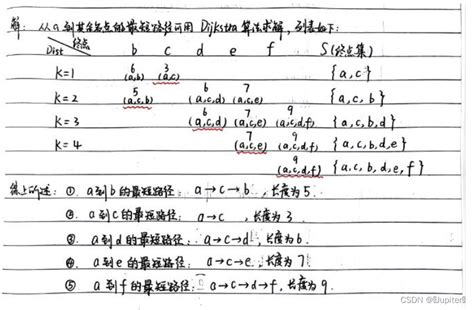 解：从a到其余各点的最短路径可用 Dijkstra 算法求解，列表如下：
Dist 终点 b c d e f S(终点集)
K=1 6 (a,b) 3 (a,c) {a,c}
K=2 5 (a,c,b) 6 (a,c,d) 7 (a,c,e) {a,c,b}
K=3 6 (a,c,d) 7 (a,c,e) 9 (a,c,d,f) {a,c,b,d}
K=4 7 (a,c,e) 9 (a,c,d,f) {a,c,b,d,e}
9 (a,c,d,f) {a,c,b,d,e,f}
综上所述：①. a到b的最短路径：a→c→b，长度为5.
②. a到c的最短路径：a→c，长度为3
③. a到d的最短路径：a→c→d，长度为6.
④. a到e的最短路径：a→c→e，长度为7
⑤ a到f的最短路径：a→c→d→f，长度为9.
CSDN @Jupiter